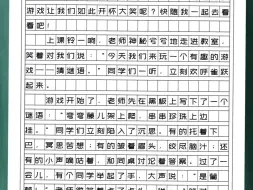 游戏让我们如此开怀大笑呢？快随我一起去看
看吧！
上课铃一响，老师神秘兮兮地走进教室，
笑着对我们说：“今天我们来玩一个有趣的游
戏——猜谜语。”同学们一听，立刻欢呼雀跃
起来。
游戏开始了，老师先在黑板上写下了一个
谜语：“弯弯藤儿架上爬，串串珍珠上边
挂。”同学们立刻陷入了沉思。有的托着下
巴，冥思苦想；有的皱着眉头，绞尽脑汁；还
有的小声嘀咕着，和同桌讨论着答案。过了一
会儿，有个同学举起了手，大声说：“是葡